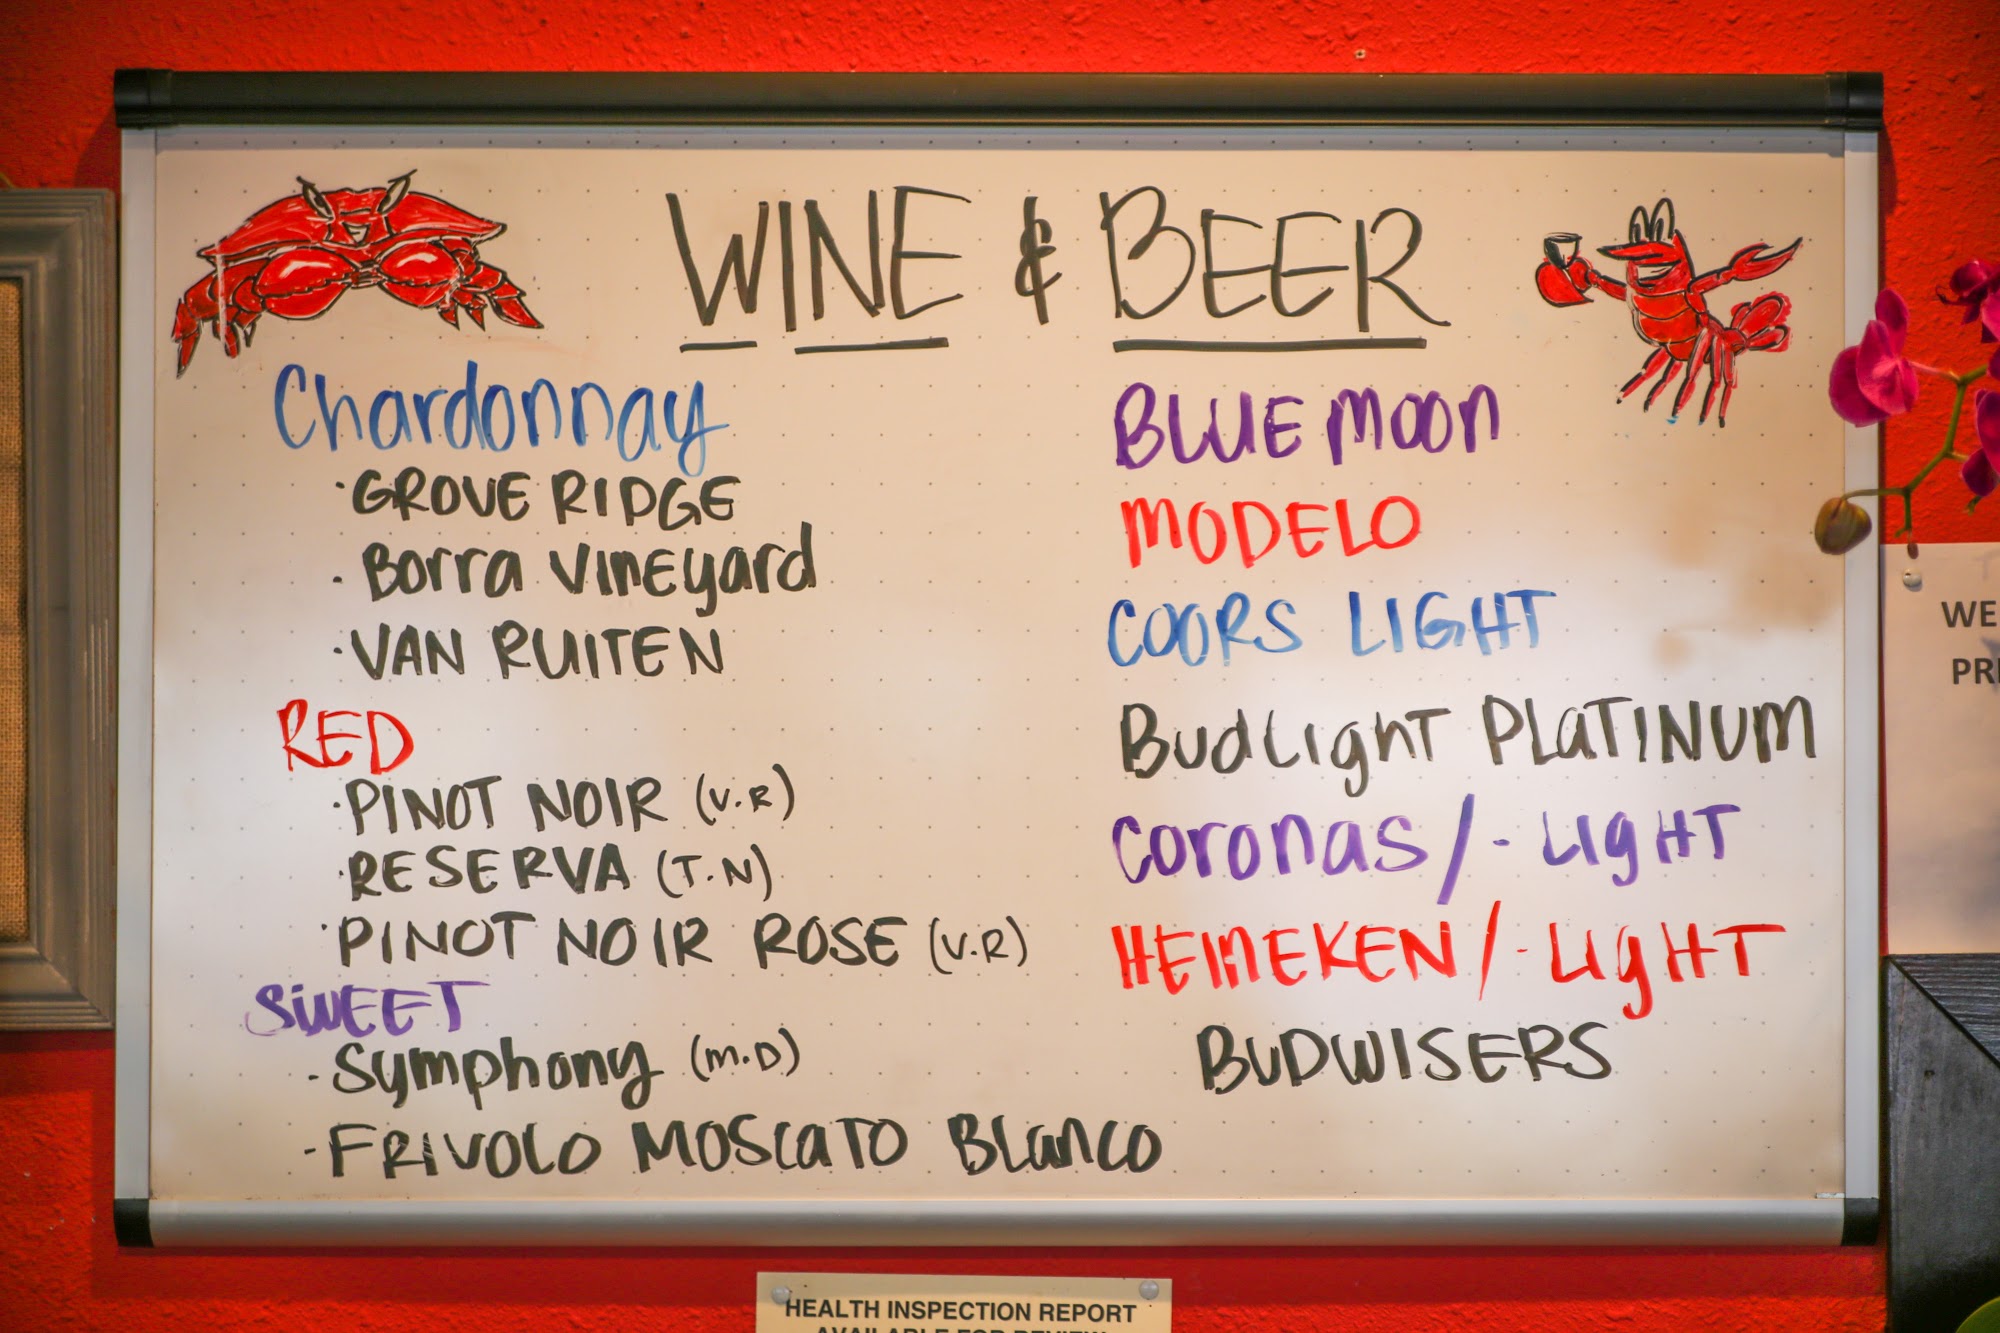 WINE & BEER
Chardonnay
· GROVE RIDGE
· Borra VINEyard
· VAN RUITEN
RED
· PINOT NOIR (V.R)
· RESERVA (T.N)
· PINOT NOIR ROSE (V.R)
SWEET
- Symphony (M.D)
- FRIVOLO MOSCATO BLANCO
BLUE MOON
MODELO
COORS LIGHT
BudLight PLATINUM
Coronas / - LIGHT
HEINEKEN / - LIGHT
BUDWISERS
WE
PR
HEALTH INSPECTION REPORT
AVAILABLE FOR REVIEW